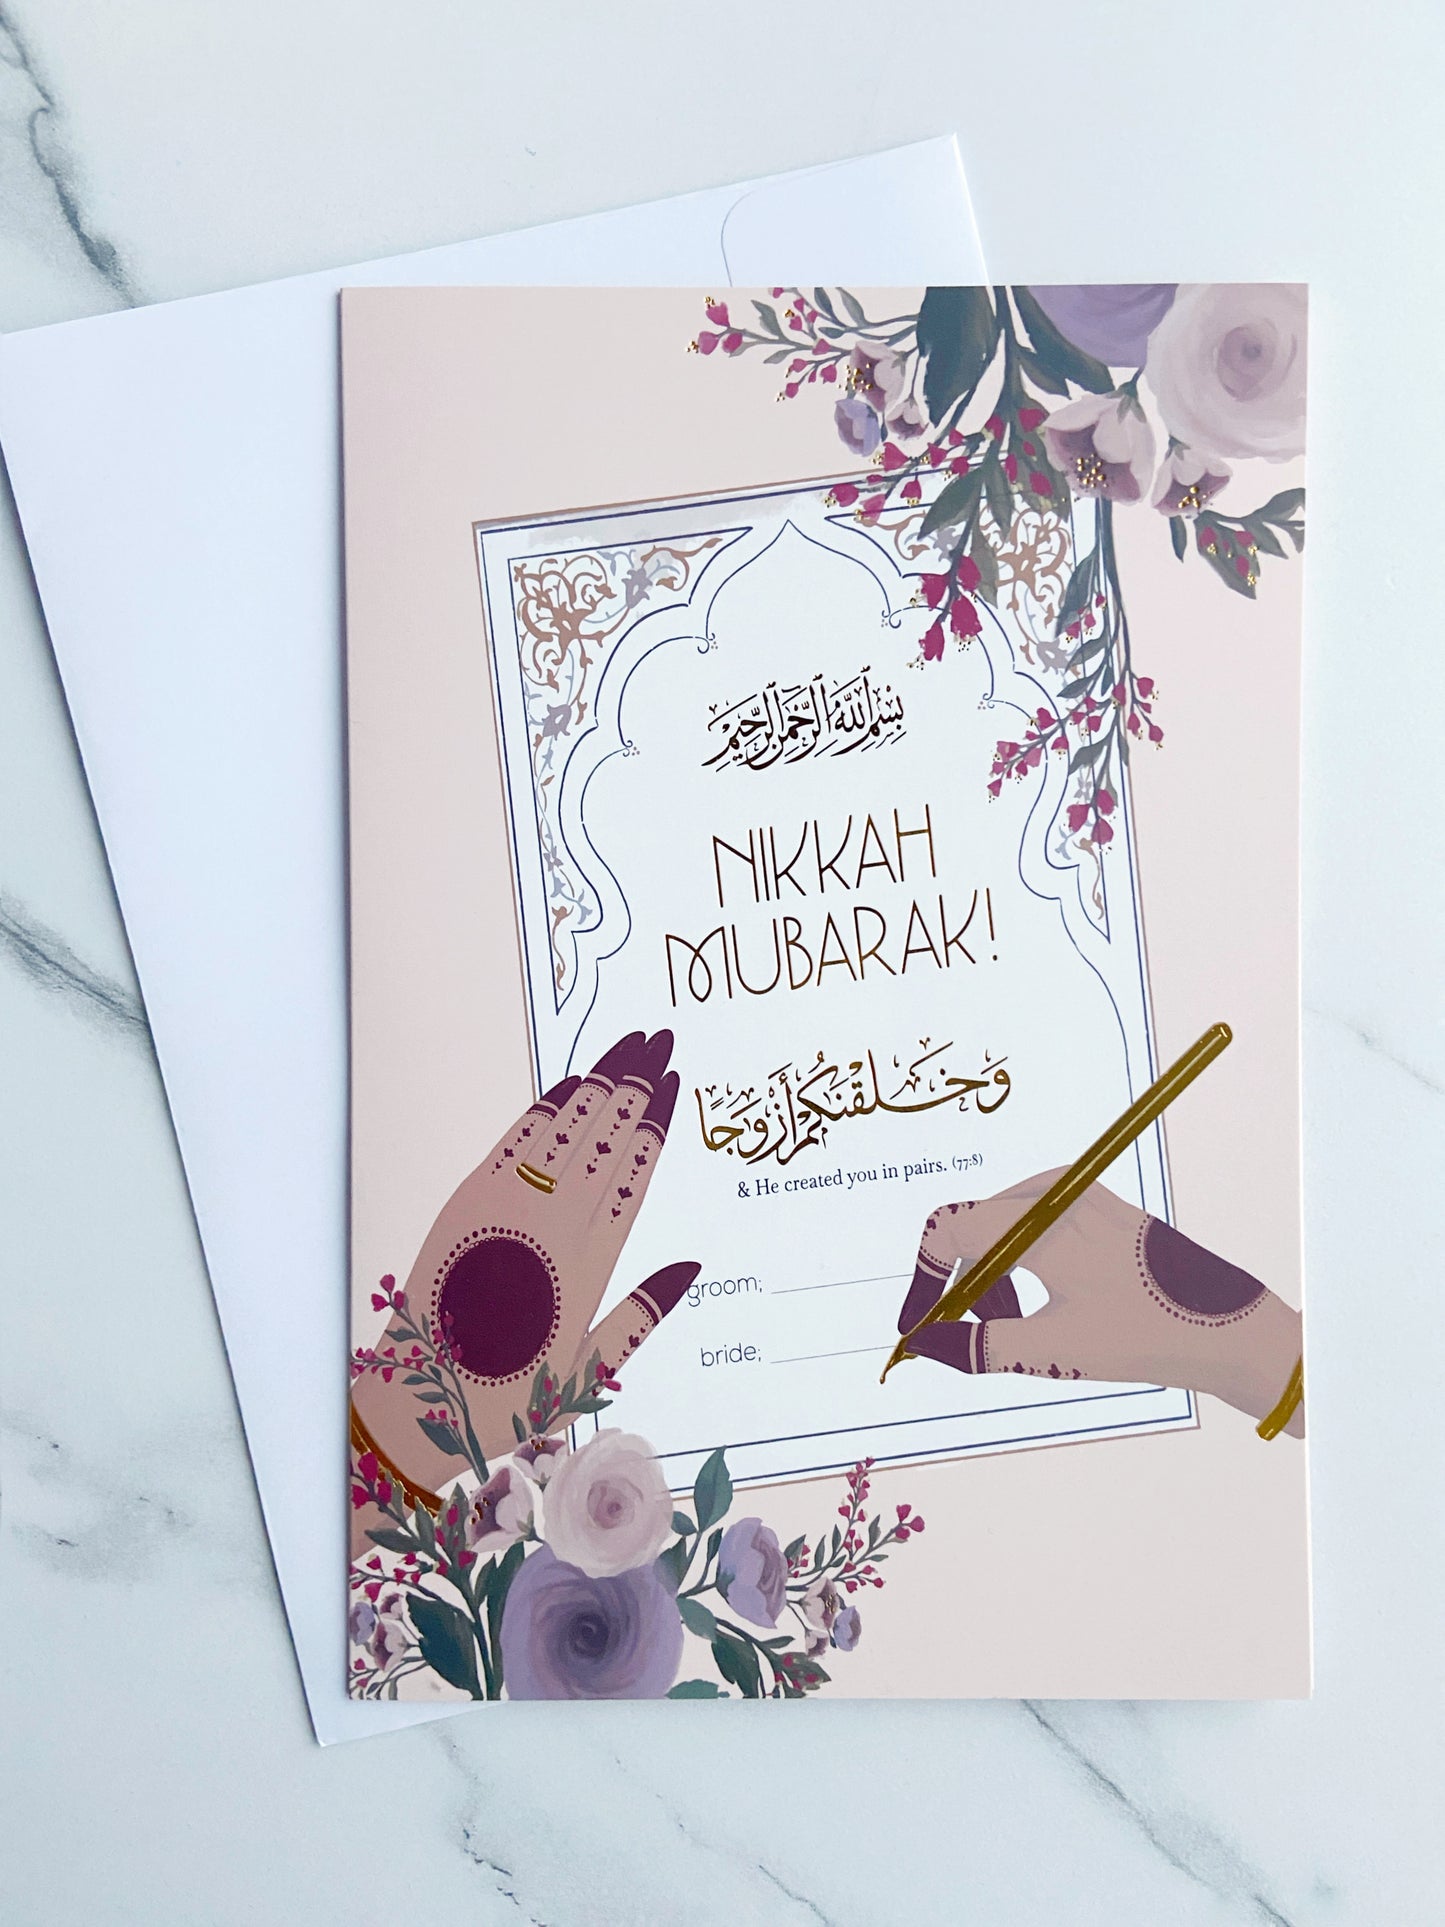 بِسْمِ ٱللَّهِ ٱلرَّحْمَٰنِ ٱلرَّحِيمِ
NIKKAH
MUBARAK!
وَخَلَقْنَٰكُمْ أَزْوَٰجًا
& He created you in pairs. (77:8)
groom;
bride;